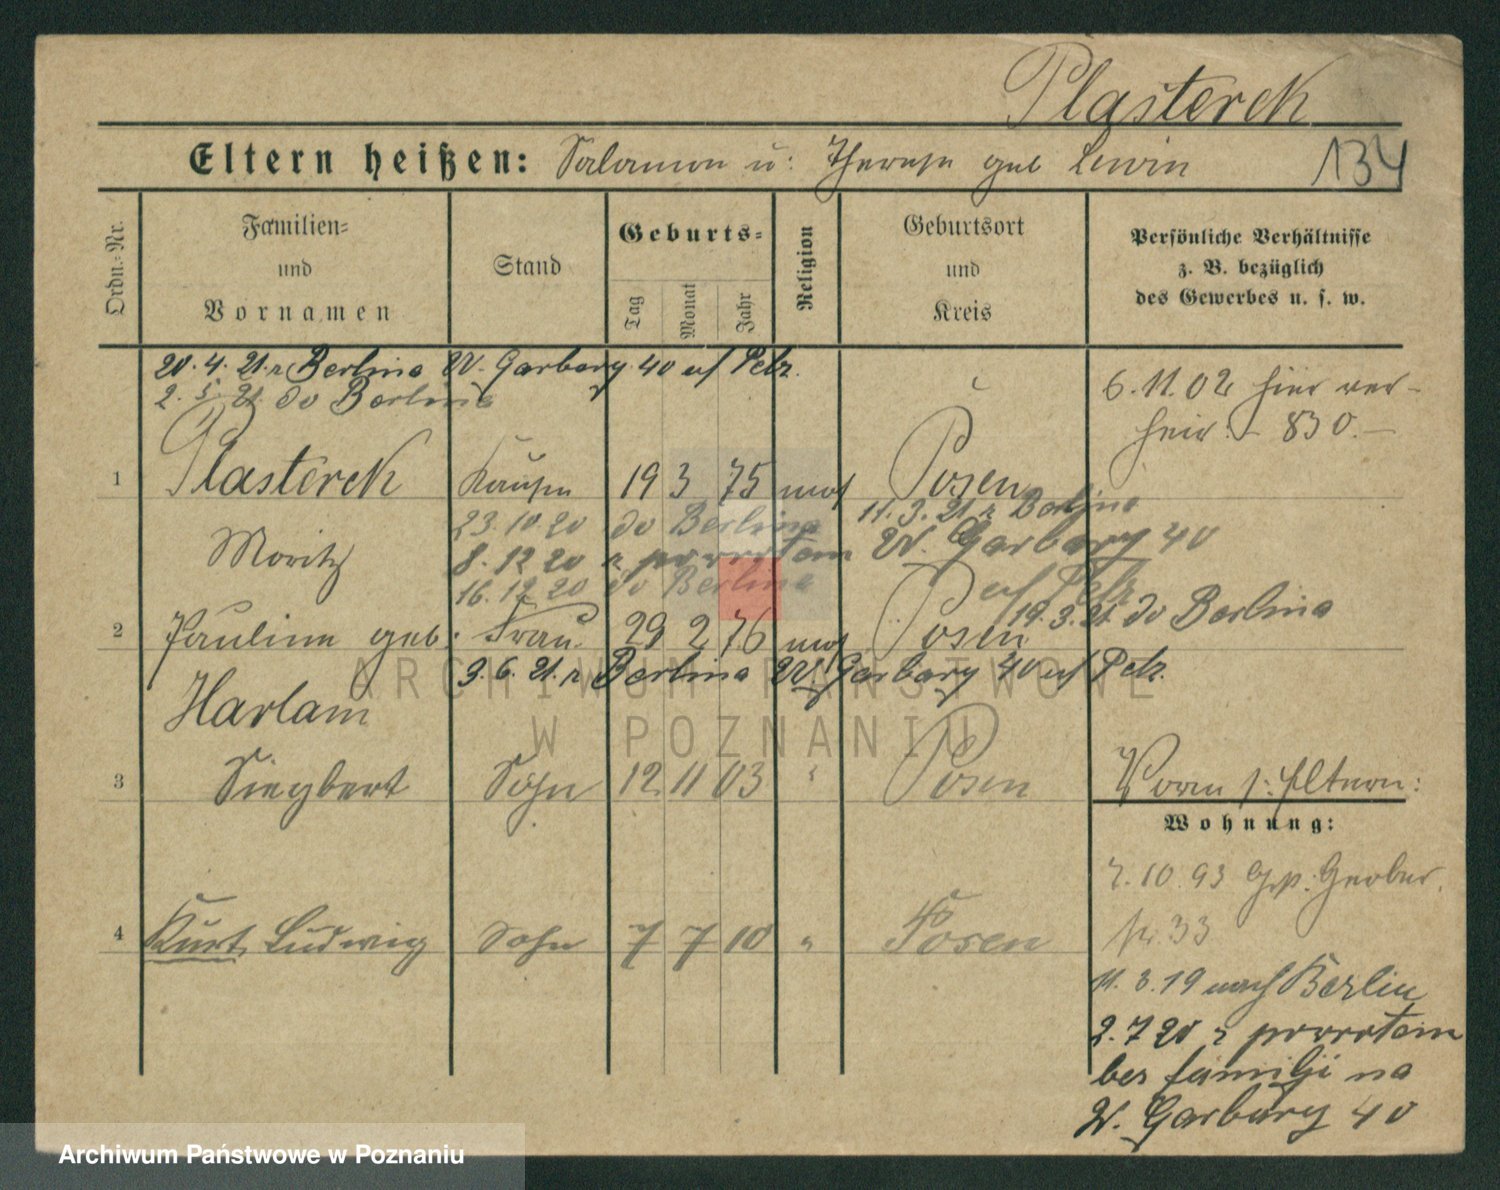 Plasterek
134
Eltern heißen: Salomon u: Therese geb Lewin
Ordn.-Nr.
Familien-
und
Vornamen
Stand
Geburts-
Tag
Monat
Jahr
Religion
Geburtsort
und
Kreis
Persönliche Verhältnisse
z. B. bezüglich
des Gewerbes u. s. w.
20. 4. 21. z Berlina W. Garbary 40 u/ Petz.
2. 5. 21 do Berlina
6. 11. 02 hier ver-
heir. - 830. -
1 Plasterek Kaufm 19 3 75 mos Posen
23. 10. 20 do Berlina
11. 3. 21 z Berlina
Moritz
8. 12 20 z powrotem W. Garbary 40
16. 12 20 do Berlina
u/ Petz
19. 3. 21 do Berlina
2 Pauline geb. Frau. 29 2 76 mos Posen
3. 6. 21. z Berlina W. Garbary 40 u/ Petz.
Harlam
ARCHIWUM PAŃSTWOWE
W POZNANIU
3 Siegbert Sohn 12 11 03 " Posen
Vorm s. Eltern:
Wohnung:
2. 10. 93 Gr. Gerber.
33
4 Kurt, Ludwig Sohn 7 7 10 " Posen
11. 3. 19 nach Berlin
2. 7 20 z powrotem
bez familji na
W. Garbary 40
Archiwum Państwowe w Poznaniu